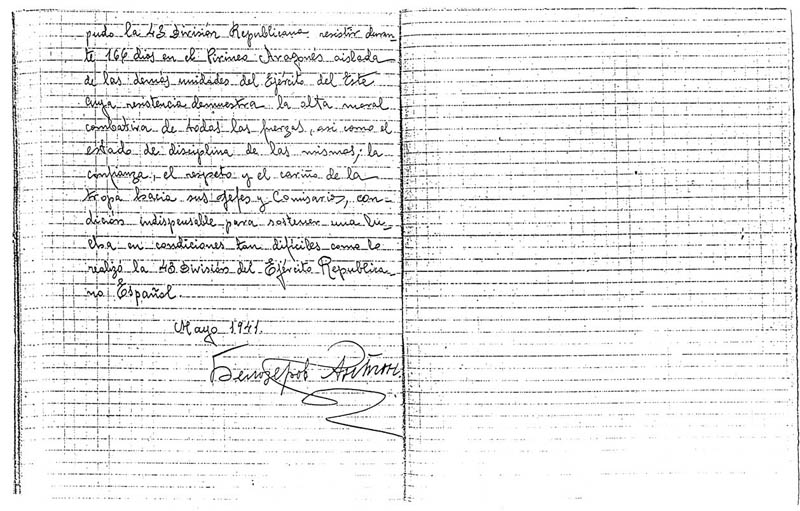 pudo la 43 División Republicana resistir duran-
te 166 días en el Pirineo Aragonés aislada
de las demás unidades del Ejército del Este
cuya resistencia demuestra la alta moral
combativa de todas las fuerzas, así como el
estado de disciplina de las mismas; la
confianza, el respeto y el cariño de la
tropa hacia sus Jefes y Comisarios, con-
dición indispensable para sostener una lu-
cha en condiciones tan difíciles como lo
realizó la 43 División del Ejército Republica-
no Español.
Mayo 1941.
Белозеров